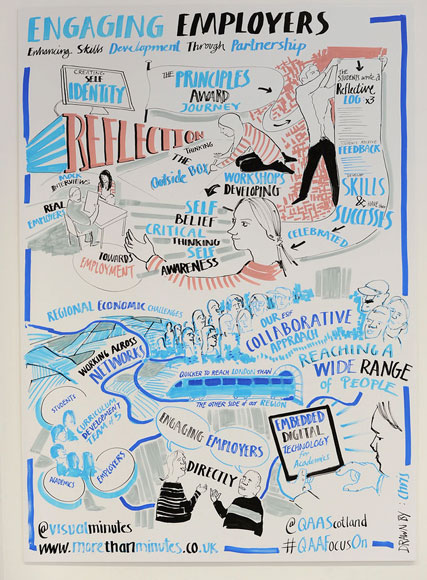 ENGAGING EMPLOYERS
Enhancing Skills Development Through Partnership
CREATING
SELF
IDENTITY
THE PRINCIPLES
AWARD
JOURNEY
THE
STUDENTS write a
Reflective
LOG x3
REFLECTION
THINKING
THE
Outside Box
MOCK
INTERVIEWS
REAL
EMPLOYERS
WORKSHOPS
DEVELOPING
FEEDBACK
SKILLS
&
SUCCESSES
CELEBRATED
SELF
BELIEF
CRITICAL
THINKING
SELF
AWARENESS
TOWARDS
EMPLOYMENT
REGIONAL ECONOMIC CHALLENGES
OUR
COLLABORATIVE
APPROACH
WORKING ACROSS
NETWORKS
REACHING A
WIDE RANGE
of PEOPLE
QUICKER TO REACH LONDON THAN
THE OTHER SIDE of OUR REGION
STUDENTS
CURRICULUM
DEVELOPMENT
TEAMS
ACADEMICS
EMPLOYERS
ENGAGING EMPLOYERS
DIRECTLY
EMBEDDED
DIGITAL
TECHNOLOGY
for
Academics
@visualminutes
www.morethanminutes.co.uk
@QAAScotland
#QAAFocusOn
DRAWN BY: CHRIS